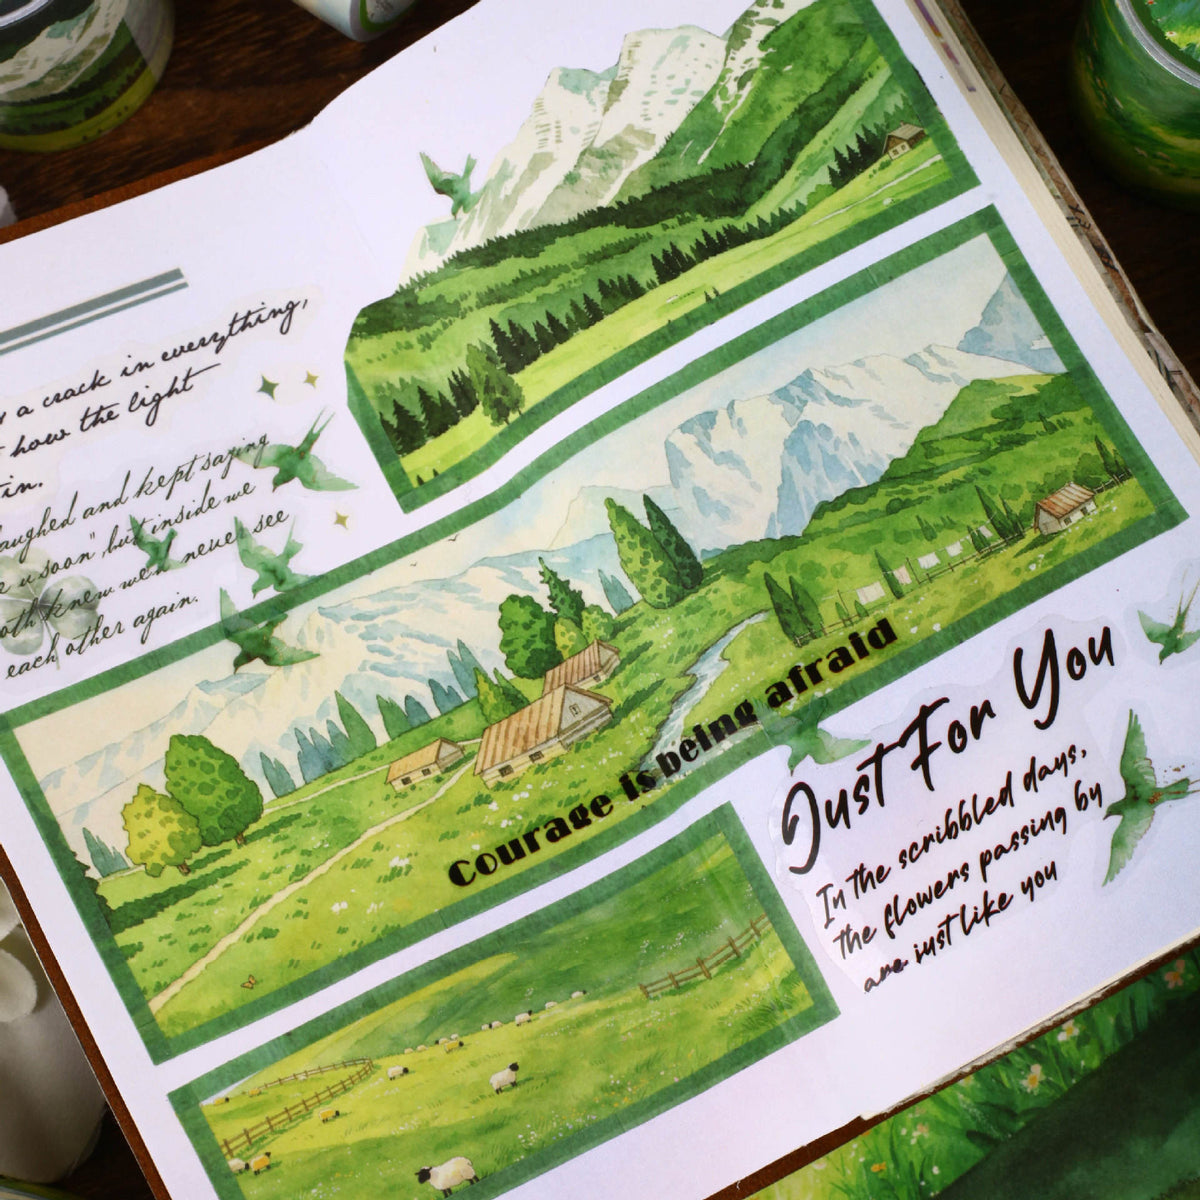 a crack in everything,
how the light
in.
laughed and kept saying
u soon" but inside we
knew we'll never see
each other again.
Courage is being afraid
Just For You
In the scribbled days,
the flowers passing by
are just like you